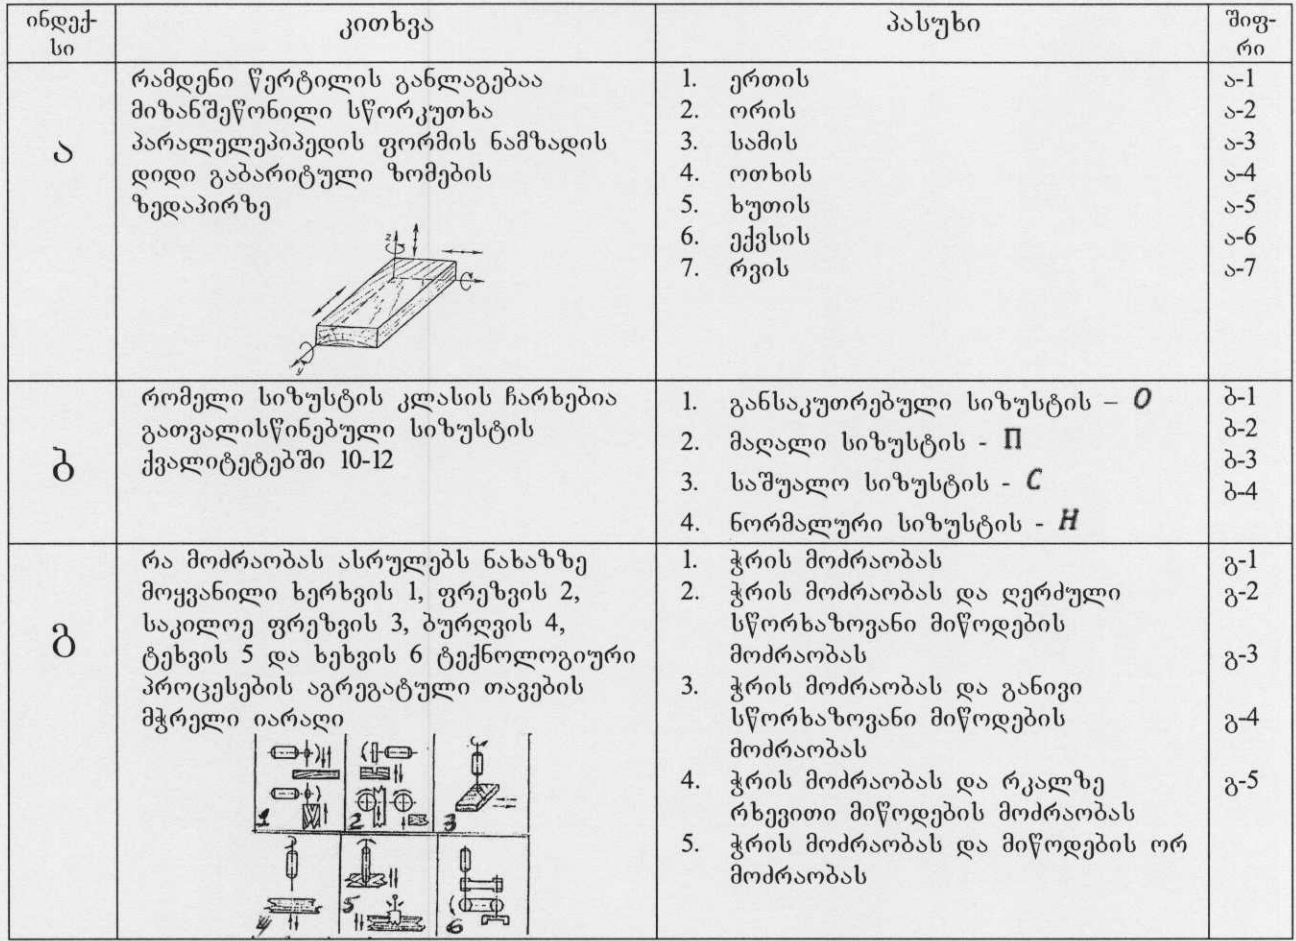 ინდექ-
სი
კითხვა
პასუხი
შიფ-
რი
ა
რამდენი წერტილის განლაგებაა
მიზანშეწონილი სწორკუთხა
პარალელეპიპედის ფორმის ნამზადის
დიდი გაბარიტული ზომების
ზედაპირზე
z
y
1. ერთის
2. ორის
3. სამის
4. ოთხის
5. ხუთის
6. ექვსის
7. რვის
ა-1
ა-2
ა-3
ა-4
ა-5
ა-6
ა-7
ბ
რომელი სიზუსტის კლასის ჩარხებია
გათვალისწინებული სიზუსტის
ქვალიტეტებში 10-12
1. განსაკუთრებული სიზუსტის – О
2. მაღალი სიზუსტის - П
3. საშუალო სიზუსტის - С
4. ნორმალური სიზუსტის - Н
ბ-1
ბ-2
ბ-3
ბ-4
გ
რა მოძრაობას ასრულებს ნახაზზე
მოყვანილი ხერხვის 1, ფრეზვის 2,
საკილოე ფრეზვის 3, ბურღვის 4,
ტეხვის 5 და ხეხვის 6 ტექნოლოგიური
პროცესების აგრეგატული თავების
მჭრელი იარაღი
1
2
3
4
5
6
1. ჭრის მოძრაობას
2. ჭრის მოძრაობას და ღერძული
სწორხაზოვანი მიწოდების
მოძრაობას
3. ჭრის მოძრაობას და განივი
სწორხაზოვანი მიწოდების
მოძრაობას
4. ჭრის მოძრაობას და რკალზე
რხევითი მიწოდების მოძრაობას
5. ჭრის მოძრაობას და მიწოდების ორ
მოძრაობას
გ-1
გ-2
გ-3
გ-4
გ-5